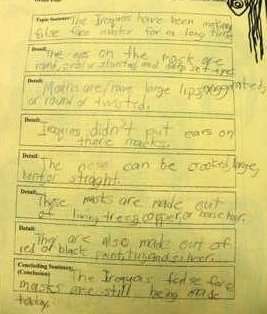 Topic Sentence: The Iroquois have been making
false face masks for a long time
Detail: The eyes on the mask are
round, oval or slanting and deep set
Detail: Masks are/have large lips
or round or twisted.
Detail:
Iroquois didn't put ears on
there masks.
Detail: The nose can be crooked, large,
bent or straight.
Detail: These masks are made out
of living trees, copper, or horse hair.
Detail: They are also made out of
red or black paint, tin, and silver.
Concluding Sentence:
(Conclusion) The Iroquois false face
masks are still being made
today.